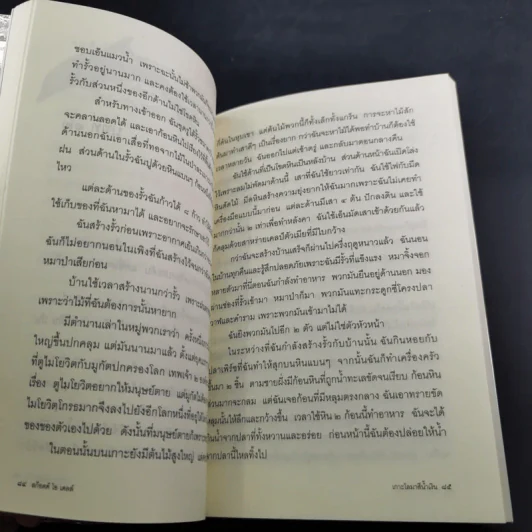 ชอบเอ็นแมวน้ำ เพราะฉะนั้นไม่ช้า
ทำรั้วอยู่นานมาก และคงต้องใช้เวลา
รั้วกับส่วนหนึ่งของอีกด้านไม่ใช่
สำหรับทางเข้าออก ฉันขุดรูใต้รั้ว
จะคลานลอดได้ และเอาก้อนหินไปเรียง
ด้านนอกฉันเอาเสื่อที่ทอจากไม้ใน
ฝน ส่วนด้านในรั้วฉันปูด้วยหินแบนๆ
ไหว
แต่ละด้านของรั้วฉันก้าวได้ ๘ ก้าว
ใช้เก็บของที่ฉันหามาได้ และอยากจะรักษา
ฉันสร้างรั้วก่อนเพราะอากาศเย็น
ฉันก็ไม่อยากนอนในเพิงที่ฉันสร้างไว้
หมาป่าเสียก่อน
บ้านใช้เวลาสร้างนานกว่ารั้ว
เพราะว่าไม้ที่ฉันต้องการนั้นหายาก
มีตำนานเล่าในหมู่พวกเราว่า ครั้งหนึ่ง
ใหญ่ขึ้นปกคลุม แต่มันนานมาแล้ว ตั้งแต่
ที่ตูไมโยวิตกับมูกัตปกครองโลก เทพเจ้า ๒
เรื่อง ตูไมโยวิตอยากให้มนุษย์ตาย
ไมโยวิตโกรธมากจึงลงไปยังอีกโลกหนึ่งที่อยู่
ของของตัวเองไปด้วย ดังนั้นที่มนุษย์ตายก็
ในตอนนั้นบนเกาะยังมีต้นไม้สูงใหญ่
๘๔ สก๊อตต์ โอ เดลล์
ก็ต้นในหุบเขา แต่ต้นไม้พวกนี้ก็ทั้งเล็กทั้งแกร็น การจะหาไม้สัก
เป็นเรื่องยาก กว่าฉันจะหาไม้ได้พอทำบ้านก็ต้องใช้
เวลาหลายวัน ฉันออกไปแต่เช้าตรู่ และกลับมาตอนกลางคืน
ฉันใช้ด้านที่เป็นโขดหินเป็นหลังบ้าน ส่วนด้านหน้าฉันเปิดโล่ง
ไว้เพราะลมไม่พัดมาด้านนี้ เสาที่ฉันใช้ยาวเท่ากัน ฉันใช้ไฟกับมีด
หินตัดไม้ มีดหินสร้างความยุ่งยากให้ฉันมากเพราะฉันไม่เคยทำ
เครื่องมือแบบนี้มาก่อน แต่ละด้านมีเสา ๔ ต้น ปักลงดิน และใช้
มากกว่านั้น ๒ เท่าเพื่อทำหลังคา ฉันใช้เอ็นมัดเสาเข้าด้วยกันแล้ว
ก็คลุมด้วยสาหร่ายเคลป์ตัวเมียที่มีใบกว้าง
กว่าฉันจะสร้างบ้านเสร็จก็ผ่านไปครึ่งฤดูหนาวแล้ว ฉันนอน
ในบ้านทุกคืนและรู้สึกปลอดภัยเพราะฉันมีรั้วที่แข็งแรง หมาจิ้งจอก
หลายตัวมาที่นี่ตอนฉันกำลังทำอาหาร พวกมันยืนอยู่ด้านนอก มอง
ผ่านช่องที่รั้วเข้ามา หมาป่าก็มา พวกมันแทะกระดูกซี่โครงปลา
วาฬและคำราม เพราะพวกมันเข้ามาไม่ได้
ฉันยิงพวกมันไปอีก ๒ ตัว แต่ไม่ใช่ตัวหัวหน้า
ในระหว่างที่ฉันกำลังสร้างรั้วกับบ้านนั้น ฉันกินหอยกับ
ปลาเพิร์ชที่ฉันทำให้สุกบนหินแบนๆ จากนั้นฉันก็ทำเครื่องครัว
ขึ้นมา ๒ ชิ้น ตามชายฝั่งมีก้อนหินที่ถูกน้ำทะเลขัดจนเรียบ ก้อนหิน
ส่วนมากจะกลม แต่ฉันเจอก้อนที่มีหลุมตรงกลาง ฉันเอาทรายขัด
หลุมนั้นให้ลึกและกว้างขึ้น เวลาใช้หิน ๒ ก้อนนี้ทำอาหาร ฉันจะได้
น้ำจากปลาที่ทั้งหวานและอร่อย ก่อนหน้านี้ฉันต้องปล่อยให้น้ำ
จากปลานี้ไหลทิ้งไป
เกาะโลมาสีน้ำเงิน ๘๕